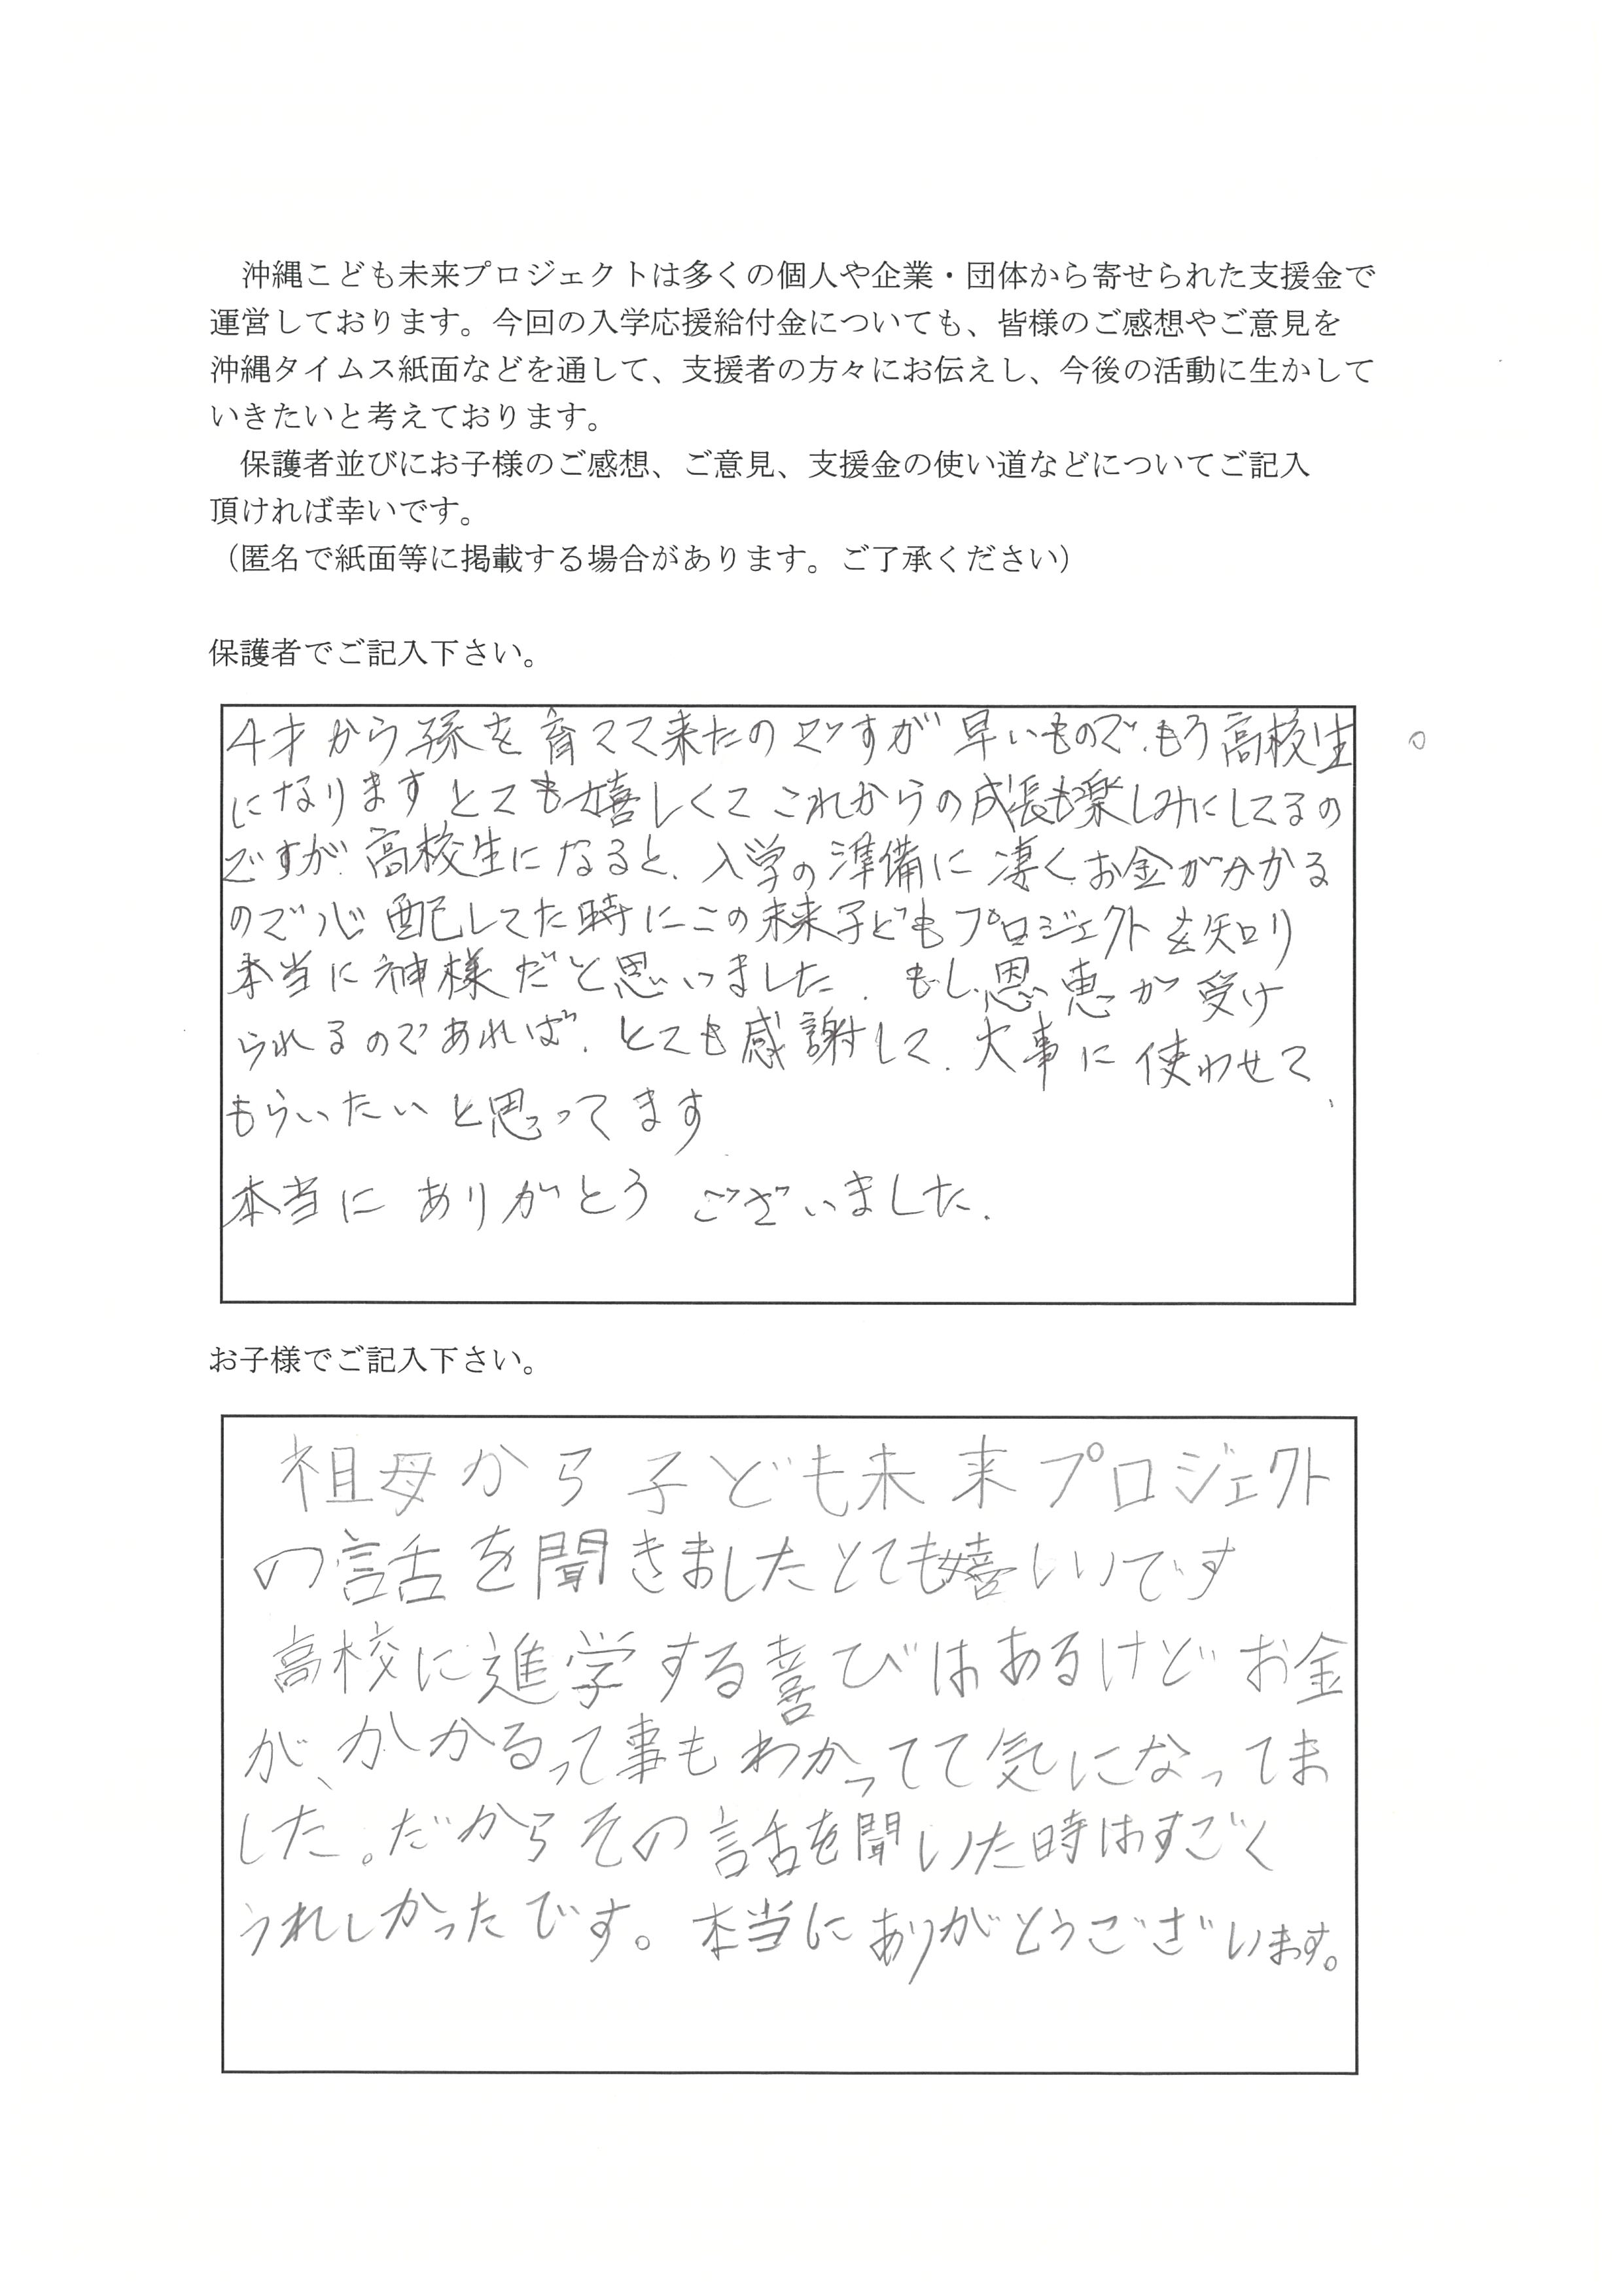 沖縄こども未来プロジェクトは多くの個人や企業・団体から寄せられた支援金で
運営しております。今回の入学応援給付金についても、皆様のご感想やご意見を
沖縄タイムス紙面などを通して、支援者の方々にお伝えし、今後の活動に生かして
いきたいと考えております。
保護者並びにお子様のご感想、ご意見、支援金の使い道などについてご記入
頂ければ幸いです。
（匿名で紙面等に掲載する場合があります。ご了承ください）
保護者でご記入下さい。
4才から孫を育てて来たのですが早いもので、もう高校生
になりますとても嬉しくてこれからの成長も楽しみにしてるの
ですが、高校生になると、入学の準備に凄くお金がかかる
ので心配してた時にこの未来子どもプロジェクトを知り
本当に神様だと思いました、もし恩恵が受け
られるのであれば、とても感謝して、大事に使わせて、
もらいたいと思ってます
本当にありがとうございました.
お子様でご記入下さい。
祖母から子ども未来プロジェクト
の話を聞きましたとても嬉しいです
高校に進学する喜びはあるけどお金
が、かかるって事もわかってて気になってま
した。だからその話を聞いた時はすごく
うれしかったです。本当にありがとうございます。